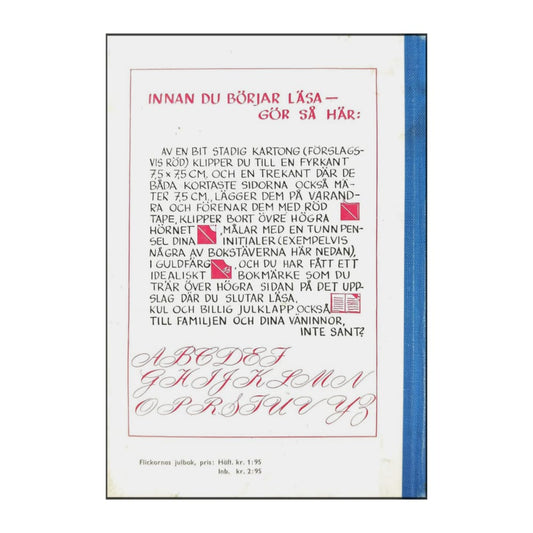 INNAN DU BÖRJAR LÄSA —
GÖR SÅ HÄR:
AV EN BIT STADIG KARTONG (FÖRSLAGS-
VIS RÖD) KLIPPER DU TILL EN FYRKANT
7,5 x 7,5 CM, OCH EN TREKANT DÄR DE
BÅDA KORTASTE SIDORNA OCKSÅ MÄ-
TER 7,5 CM., LÄGGER DEM PÅ VARAND-
RA OCH FÖRENAR DEM MED RÖD
TAPE, KLIPPER BORT ÖVRE HÖGRA
HÖRNET , MÅLAR MED EN TUNN PEN-
SEL DINA INITIALER (EXEMPELVIS
NÅGRA AV BOKSTÄVERNA HÄR NEDAN),
I GULDFÄRG , OCH DU HAR FÅTT ETT
IDEALISKT BOKMÄRKE SOM DU
TRÄR ÖVER HÖGRA SIDAN PÅ DET UPP-
SLAG DÄR DU SLUTAR LÄSA.
KUL OCH BILLIG JULKLAPP OCKSÅ
TILL FAMILJEN OCH DINA VÄNINNOR,
INTE SANT?
ABCDEF
GHIJKLMN
OPRSTUVYZ
Flickornas julbok, pris: Häft. kr. 1:95
Inb. kr. 2:95